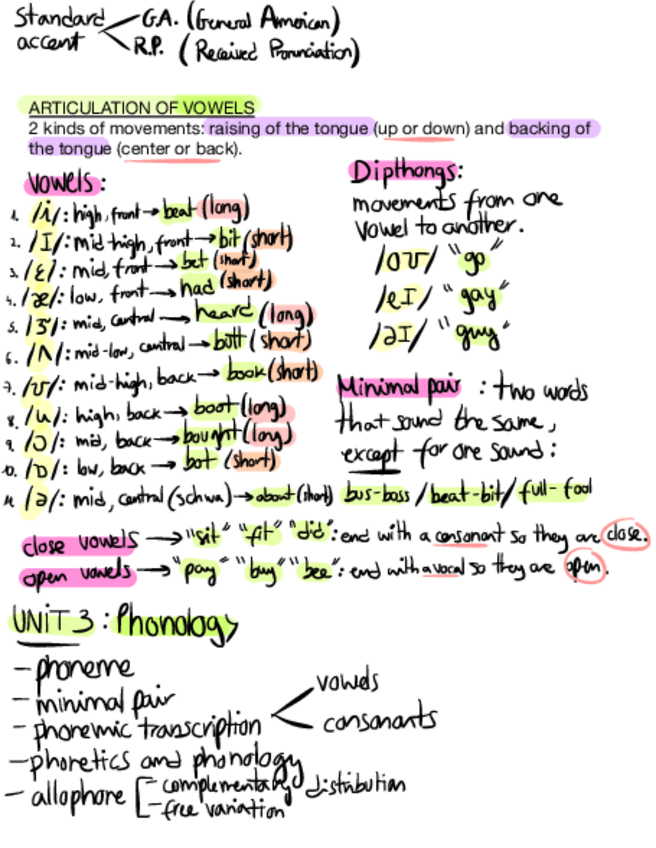 Standard
accent
G.A. (General American)
R.P. (Received Pronunciation)
ARTICULATION OF VOWELS
2 kinds of movements: raising of the tongue (up or down) and backing of
the tongue (center or back).
Vowels:
1. /i/: high, front → beat (long)
2. /I/: mid-high, front → bit (short)
3. /ɛ/: mid, front → bet (short)
4. /æ/: low, front → had (short)
5. /ɜ/: mid, central → heard (long)
6. /ʌ/: mid-low, central → butt (short)
7. /ʊ/: mid-high, back → book (short)
8. /u/: high, back → boot (long)
9. /ɔ/: mid, back → bought (long)
10. /ɒ/: low, back → bot (short)
11. /ə/: mid, central (schwa) → about (short)
Dipthongs:
movements from one
vowel to another.
/oʊ/ "go"
/eI/ "gay"
/əI/ "guy"
Minimal pair : two words
that sound the same,
except for one sound:
bus-boss / beat-bit / full-fool
close vowels → "sit" "fit" "did": end with a consonant so they are close.
open vowels → "pay" "buy" "bee": end with a vocal so they are open.
UNIT 3: Phonology
- phoneme
- minimal pair
- phonemic transcription
vowels
consonants
- phonetics and phonology
- allophone
- complementary distribution
- free variation